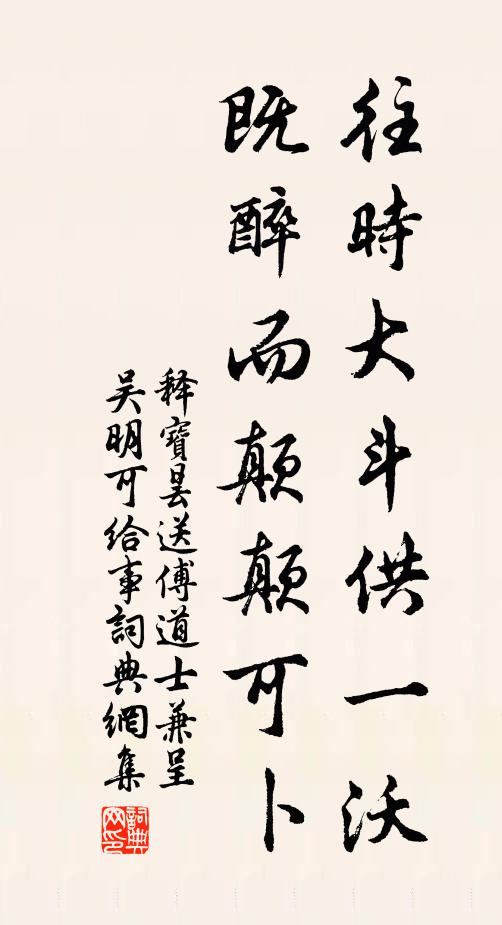 往時大斗供一沃
既醉而顛顛可卜
釋寶曇送傅道士兼呈
吳明可給事詞典網集
詞典網印